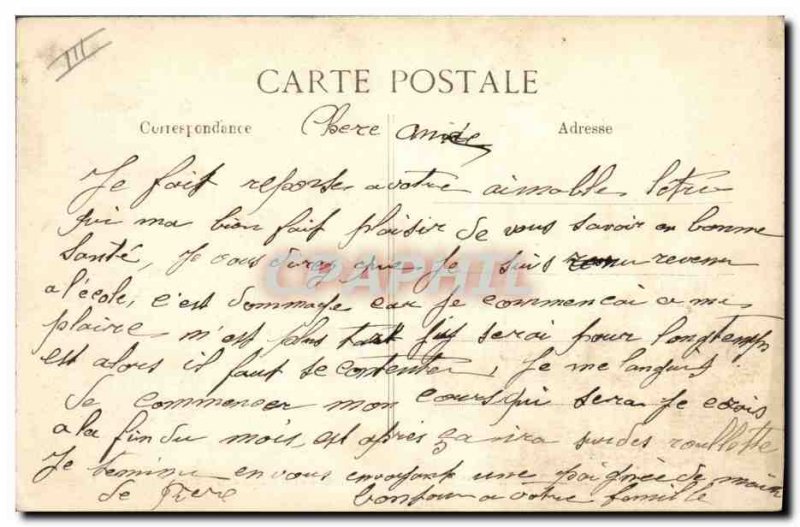 III
CARTE POSTALE
Correspondance
Adresse
Chere amie
Je fait reponse a votre aimable letre
qui ma bien fait plaisir de vous savoir en bonne
santé, Je vous direz que Je suis revenu
a l'école, c'est dommage car Je commencai a my
plaire m'est plus serai pour longtemps
est alors il faut se contenter, Je me languis
de commencer mon cours qui sera Je crois
a la fin du mois est après ça ira sur des roullette
Je termine en vous envoyant une poignée de main
de Pierre bonjour a votre famille
CPAPHIL